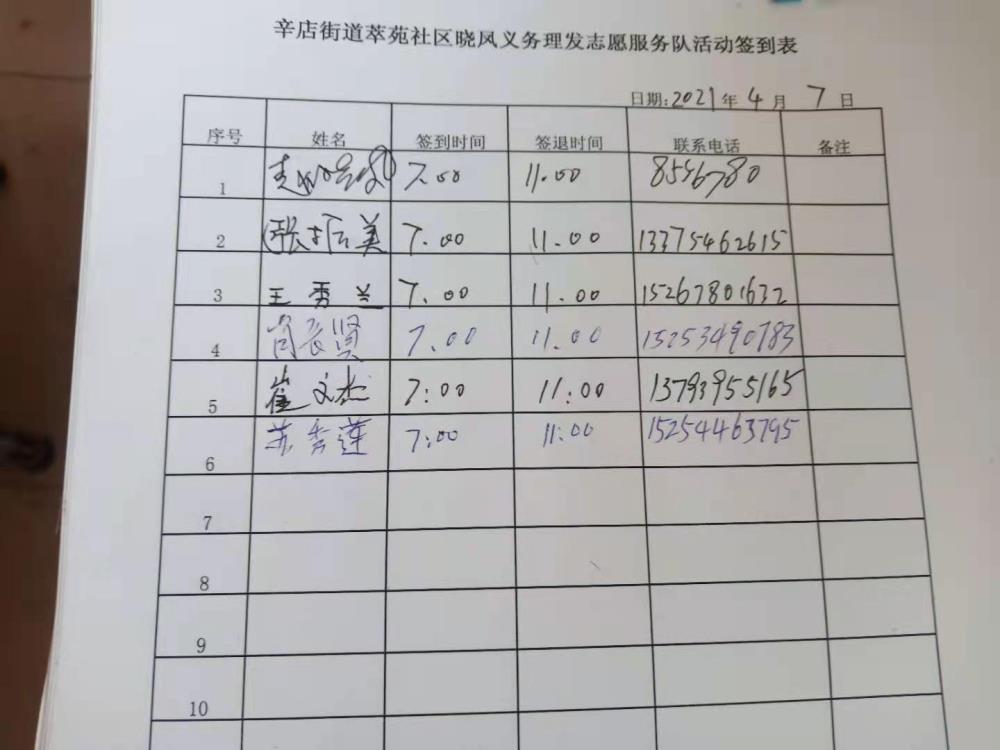 辛店街道萃苑社区晓风义务理发志愿服务队活动签到表
日期:2021年4月7日
序号 姓名 签到时间 签退时间 联系电话 备注
1 7.00 11.00 8556780
2 张 美 7.00 11.00 13375462615
3 王秀兰 7.00 11.00 15267801632
4 尚长贤 7.00 11.00 15253490783
5 崔文杰 7:00 11:00 13793955165
6 苏秀莲 7:00 11:00 15254463795
7
8
9
10